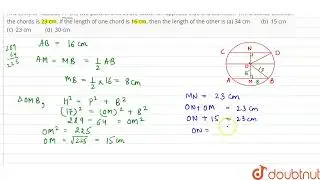 the chords is 23 cm. If the length of one chord is 16 cm, then the length of the other is (a) 34 cm (b) 15 cm
(c) 23 cm (d) 30 cm
289
64
225
AB = 16 cm
AM = MB = 1/2 AB
MB = 1/2 x 16 = 8 cm
ΔOMB, H² = P² + B²
(17)² = (OM)² + B²
289 - 64 = OM²
OM² = 225
OM = √225 = 15 cm
N
C
D
O
15
17
A
M
8
B
MN = 23 cm
ON + OM = 23 cm
ON + 15 = 23 cm
ON =
doubtnut